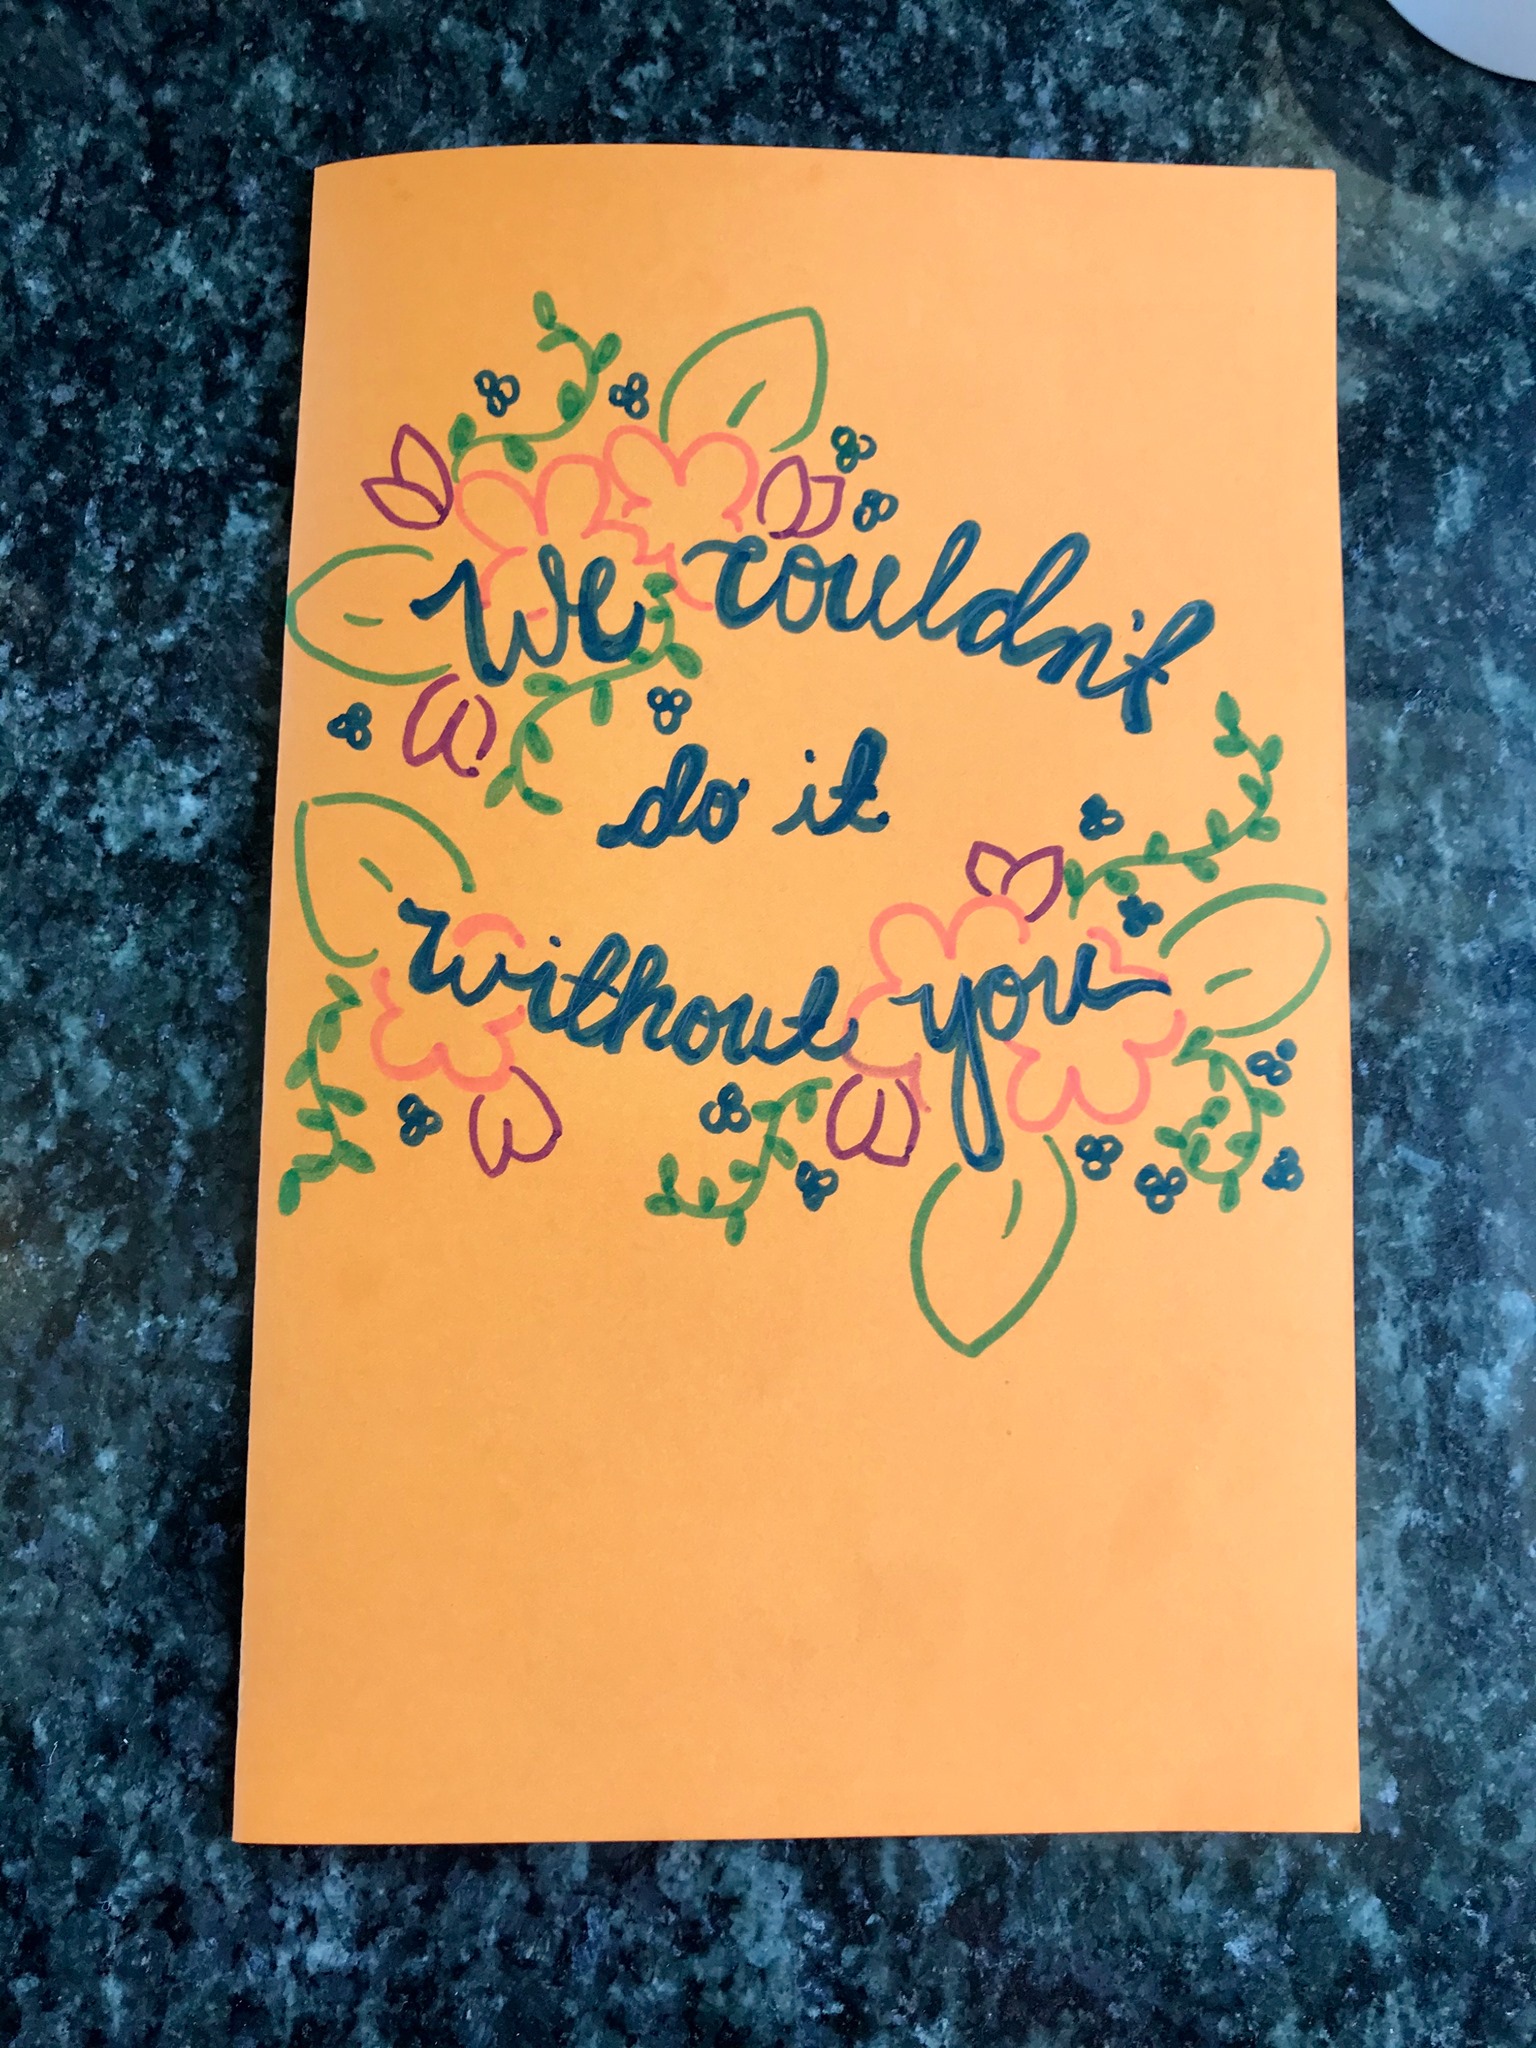 We couldn't
do it
without you